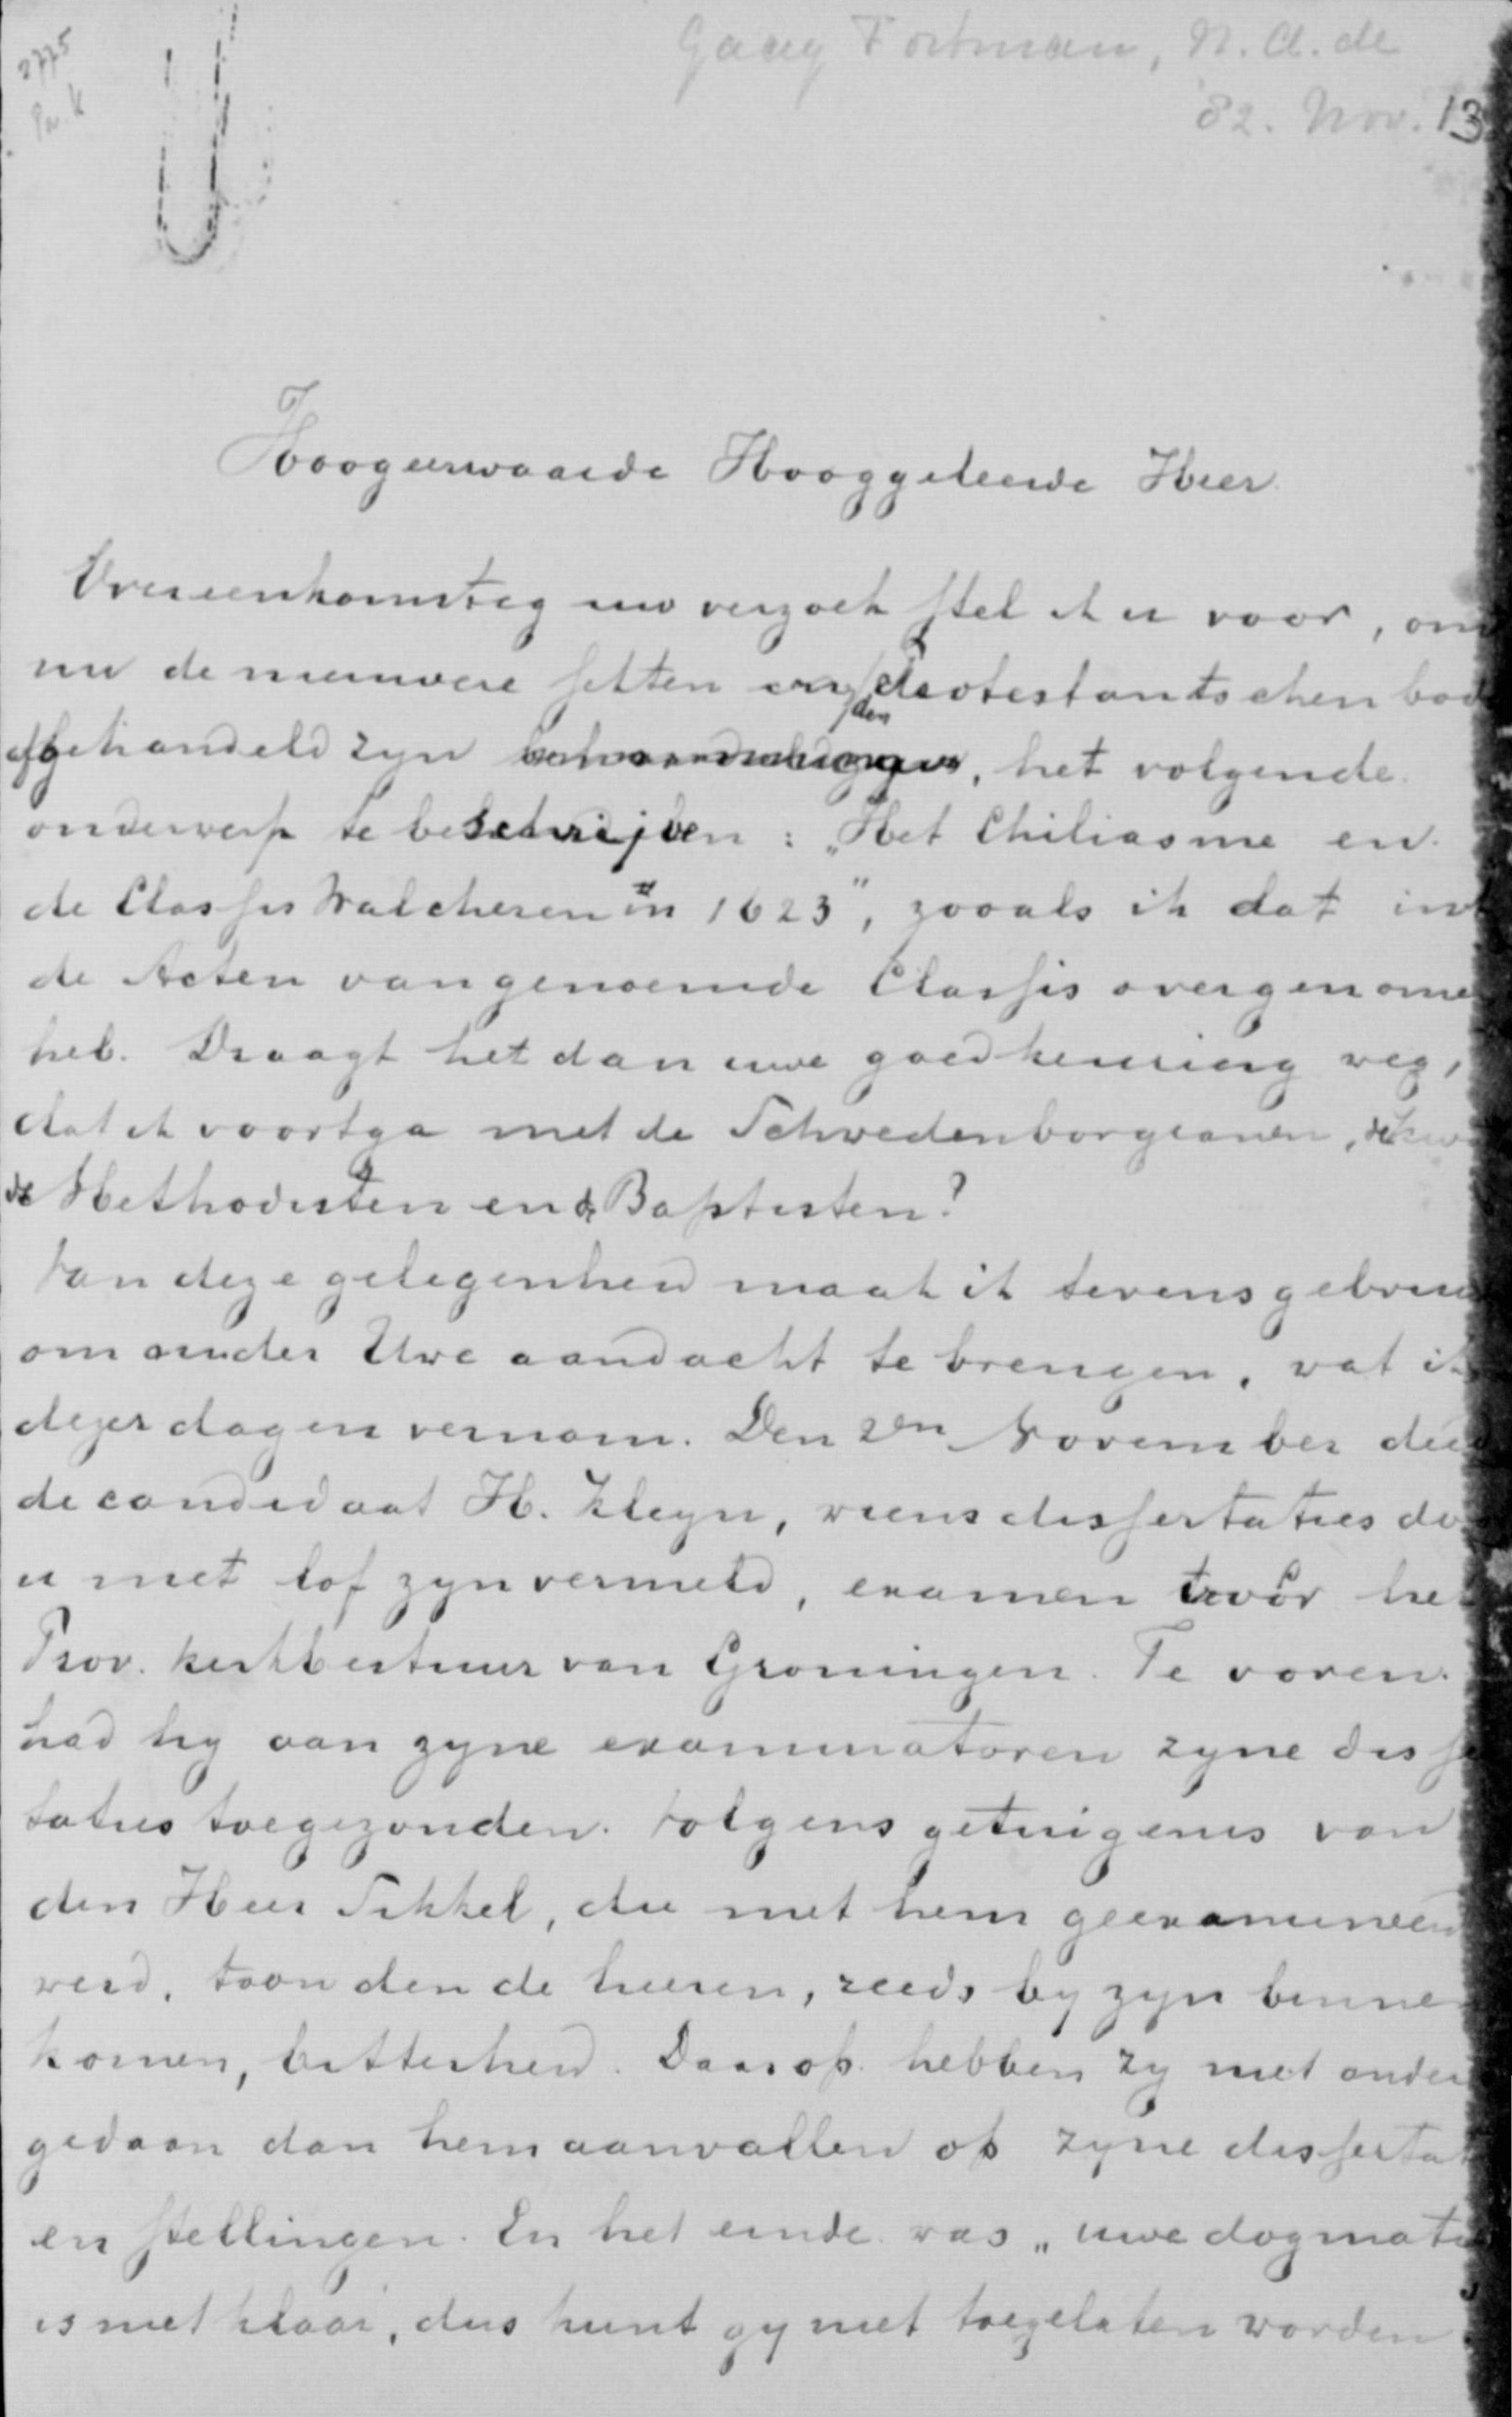 Gaay Fortman, N. A. de
82. Nov. 13
2775
Hoogeerwaarde Hooggeleerde Heer.
Overeenkomstig uw verzoek stel ik u voor, om
nu de nieuwere sekten op den protestantschen bod
afgehandeld zyn, het volgende
onderwerp te beschrijven: „Het Chiliasme en
de Classis Walcheren in 1623", zooals ik dat uit
de Acten van genoemde Classis overgenome
heb. Draagt het dan uwe goedkeuring weg,
dat ik voortga met de Schwedenborgianen,
de Methodisten en de Baptisten?
Van deze gelegenheid maak ik tevens gebrui
om onder Uwe aandacht te brengen, wat ik
dezer dagen vernam. Den 2en November deed
de candidaat H. Kleyn, wiens dissertaties do
u met lof zyn vermeld, examen voor he
Prov. kerkbestuur van Groningen. Te voren
had hy aan zyne examinatoren zyne disse
taties toegezonden. Volgens getuigenis van
den Heer Sikkel, die met hem geexamineerd
werd, toonden de heeren, reeds by zyn binne
komen, bitterheid. Daarop hebben zy niet ander
gedaan dan hem aanvallen op zyne disserta
en stellingen. En het einde was „uwe dogmati
is niet klaar, dus kunt gy niet toegelaten worden